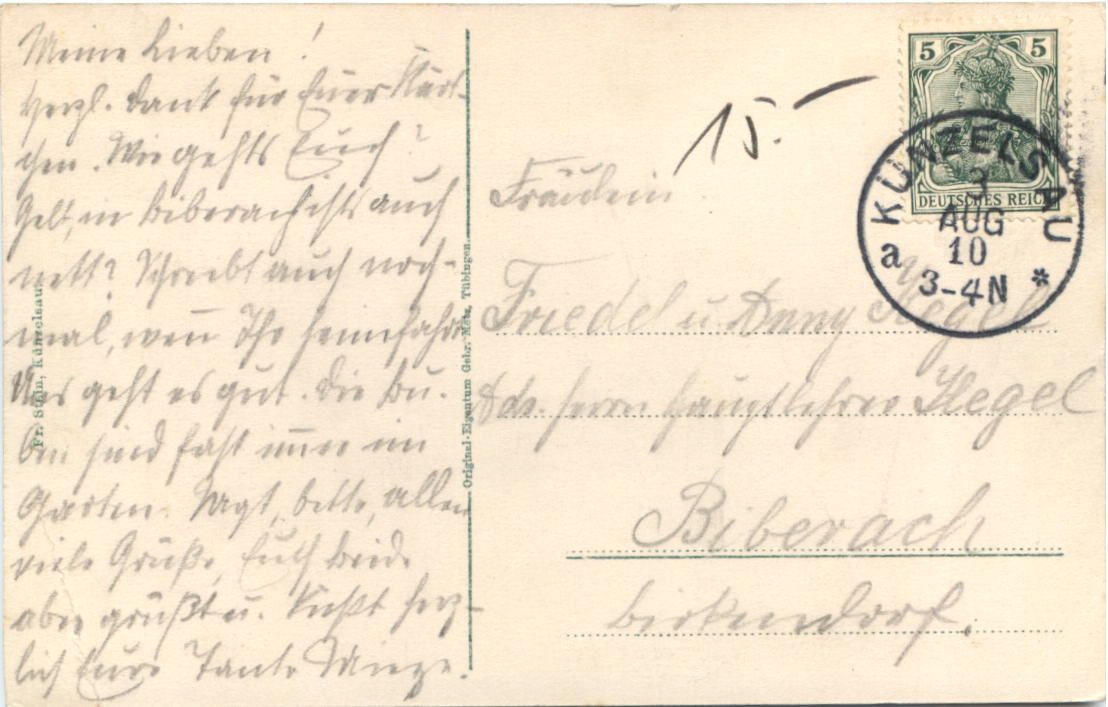 Meine Lieben!
Herzl. Dank für Euer Kärt-
chen. Wie gehts Euch?
Gelt, in Biberach ists auch
nett? Schreibt auch noch-
mal, wenn Ihr heimfahrt.
Uns geht es gut. Die Bu-
ben sind fast immer im
Garten. Sagt, bitte, allen
viele Grüße, Euch beide
aber grüßt u. küßt herz-
lich Eure Tante Mieze.
Fr. Stein, Künzelsau
Original-Eigentum Gebr. Metz, Tübingen.
15.-
5 5
DEUTSCHES REICH
KÜNZELSAU
3
AUG
10
a 3-4N *
Fräulein
Friedel u Anny Hegel
Adr. Herrn Hauptlehrer Hegel
Biberach
Birkendorf.